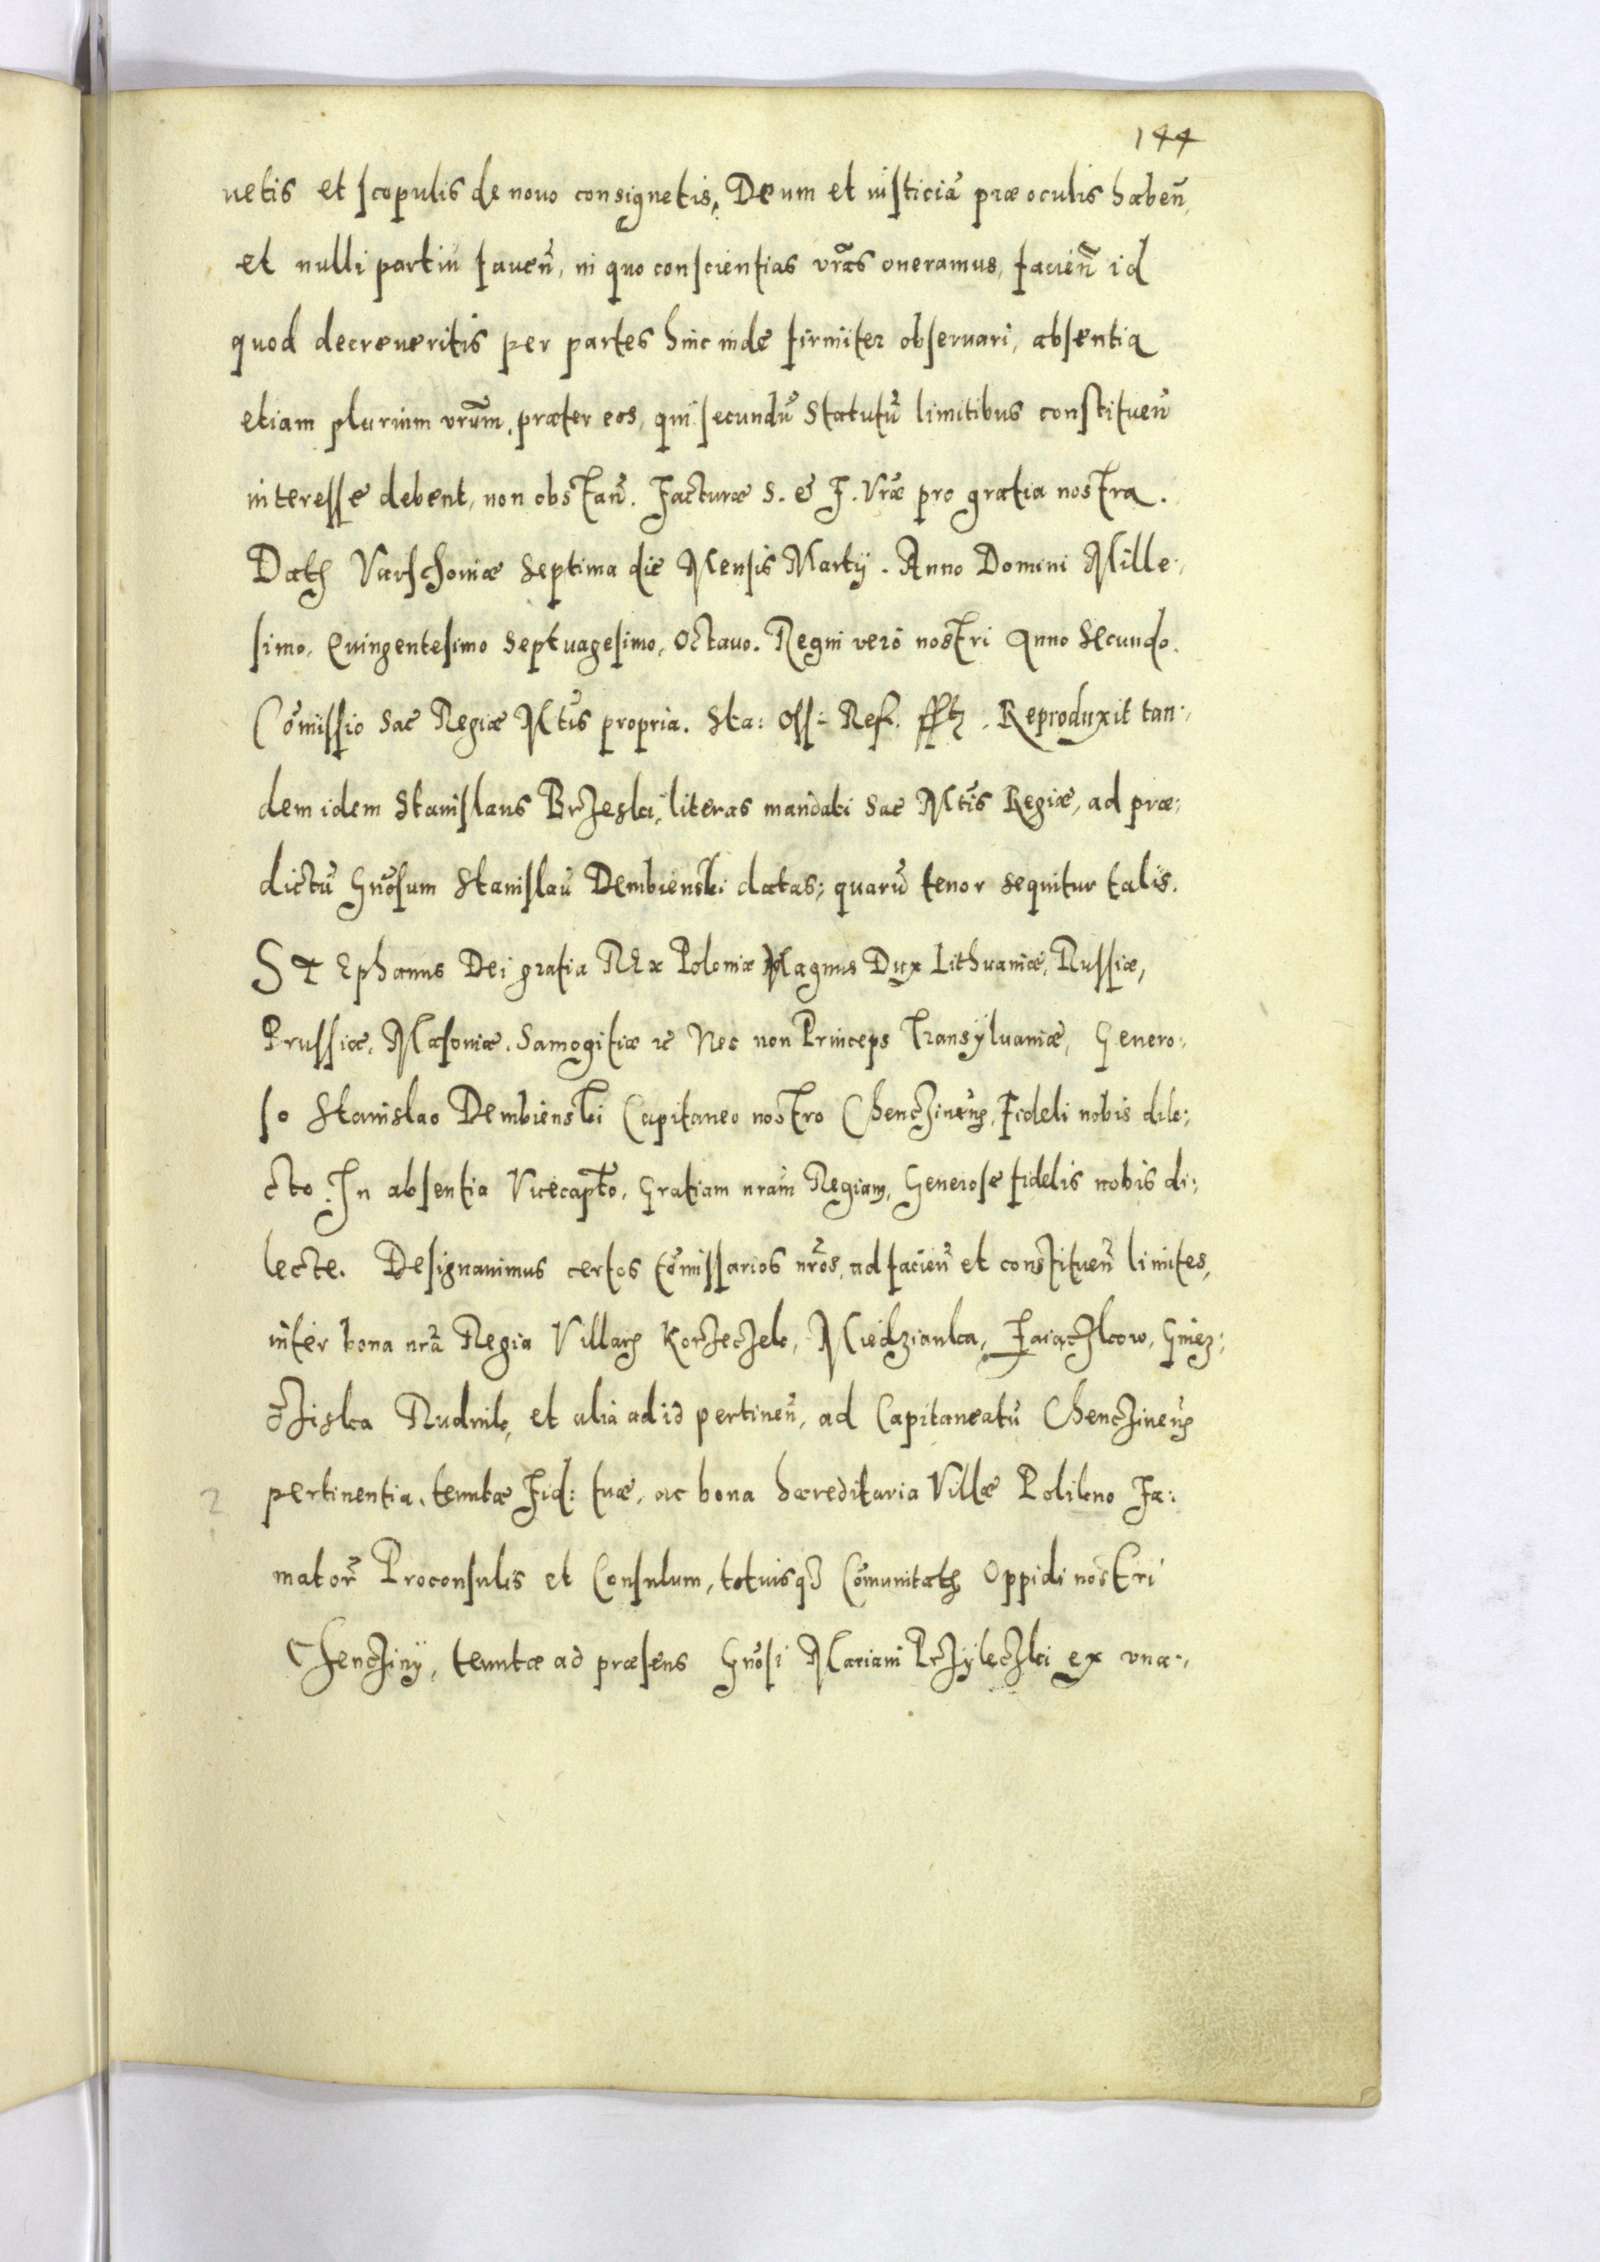 144
uetis et scopulis de nouo consignetis, Deum et iusticiā præ oculis habeñ,
et nulli partiū faueñ, in quo conscientias vr̃as oneramus, facieñ id
quod decreueritis per partes hinc inde firmiter obseruari, absentia
etiam plurium vr̃um, præter eos, qui secundū Statutū limitibus constitueñ
interesse debent, non obstañ. Facturæ S. & F. Vr̃æ pro gratia nostra.
Datꝫ Varschouiæ Septima die Mensis Martÿ. Anno Domini Mille:
simo, Quingentesimo Septuagesimo, Octauo. Regni verò nostri Anno Secundo.
Cōmissio Sac Regiæ Mtĩs propria. Sta: Oss: Ref. Reproduxit tan:
dem idem Stanislaus Brzeski, literas mandati Sac Mtĩs Regiæ, ad præ:
dictū Gñosum Stanislaū Dembienski datas; quarū tenor sequitur talis.
Stephanus Dei gratia Rex Poloniæ Magnus Dux Lithuaniæ, Russiæ,
Prussiæ, Masouiæ, Samogitiæ ꝛc Nec non Princeps Transÿluaniæ, Genero:
so Stanislao Dembienski Capitaneo nostro Chenczineñs, Fideli nobis dile:
cto. In absentia Vicecapt̃o, Gratiam nr̃am Regiam, Generose fidelis nobis di:
lecte. Designauimus certos Cōmissarios nr̃os, ad facieñ et constitueñ limites,
inter bona nr̃a Regia Villarꝫ Korzeczek, Miedzianka, Zaiączkow, Gniez:
dziska Rudnik, et alia ad id pertineñ, ad Capitaneatū Chenczineñs
pertinentia, tenutæ Fid: tuæ, ac bona hæreditaria Villæ Polikno Fa:
mator̃ Proconsulis et Consulum, totiusqꝫ Cōmunitatꝫ Oppidi nostri
Chencziny, tenutæ ad præsens Gñosi Mariani Przÿleczki ex vna: